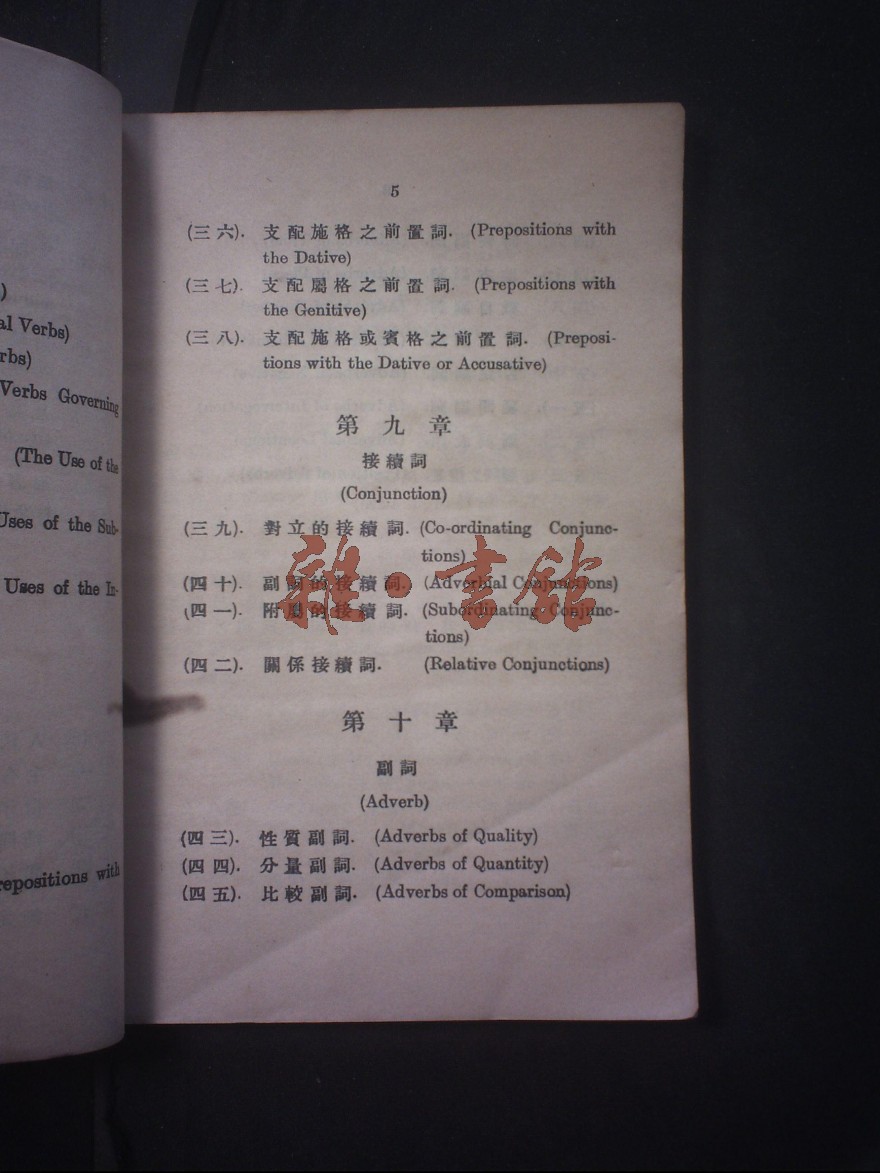 )
al Verbs)
rbs)
Verbs Governing
(The Use of the
Uses of the Sub-
Uses of the In-
repositions with
5
(三六). 支配施格之前置詞. (Prepositions with
the Dative)
(三七). 支配屬格之前置詞. (Prepositions with
the Genitive)
(三八). 支配施格或賓格之前置詞. (Preposi-
tions with the Dative or Accusative)
第九章
接續詞
(Conjunction)
(三九). 對立的接續詞. (Co-ordinating Conjunc-
tions)
(四十). 副詞的接續詞. (Adverbial Conjunctions)
(四一). 附屬的接續詞. (Subordinating Conjunc-
tions)
(四二). 關係接續詞. (Relative Conjunctions)
雜·書館
第十章
副詞
(Adverb)
(四三). 性質副詞. (Adverbs of Quality)
(四四). 分量副詞. (Adverbs of Quantity)
(四五). 比較副詞. (Adverbs of Comparison)